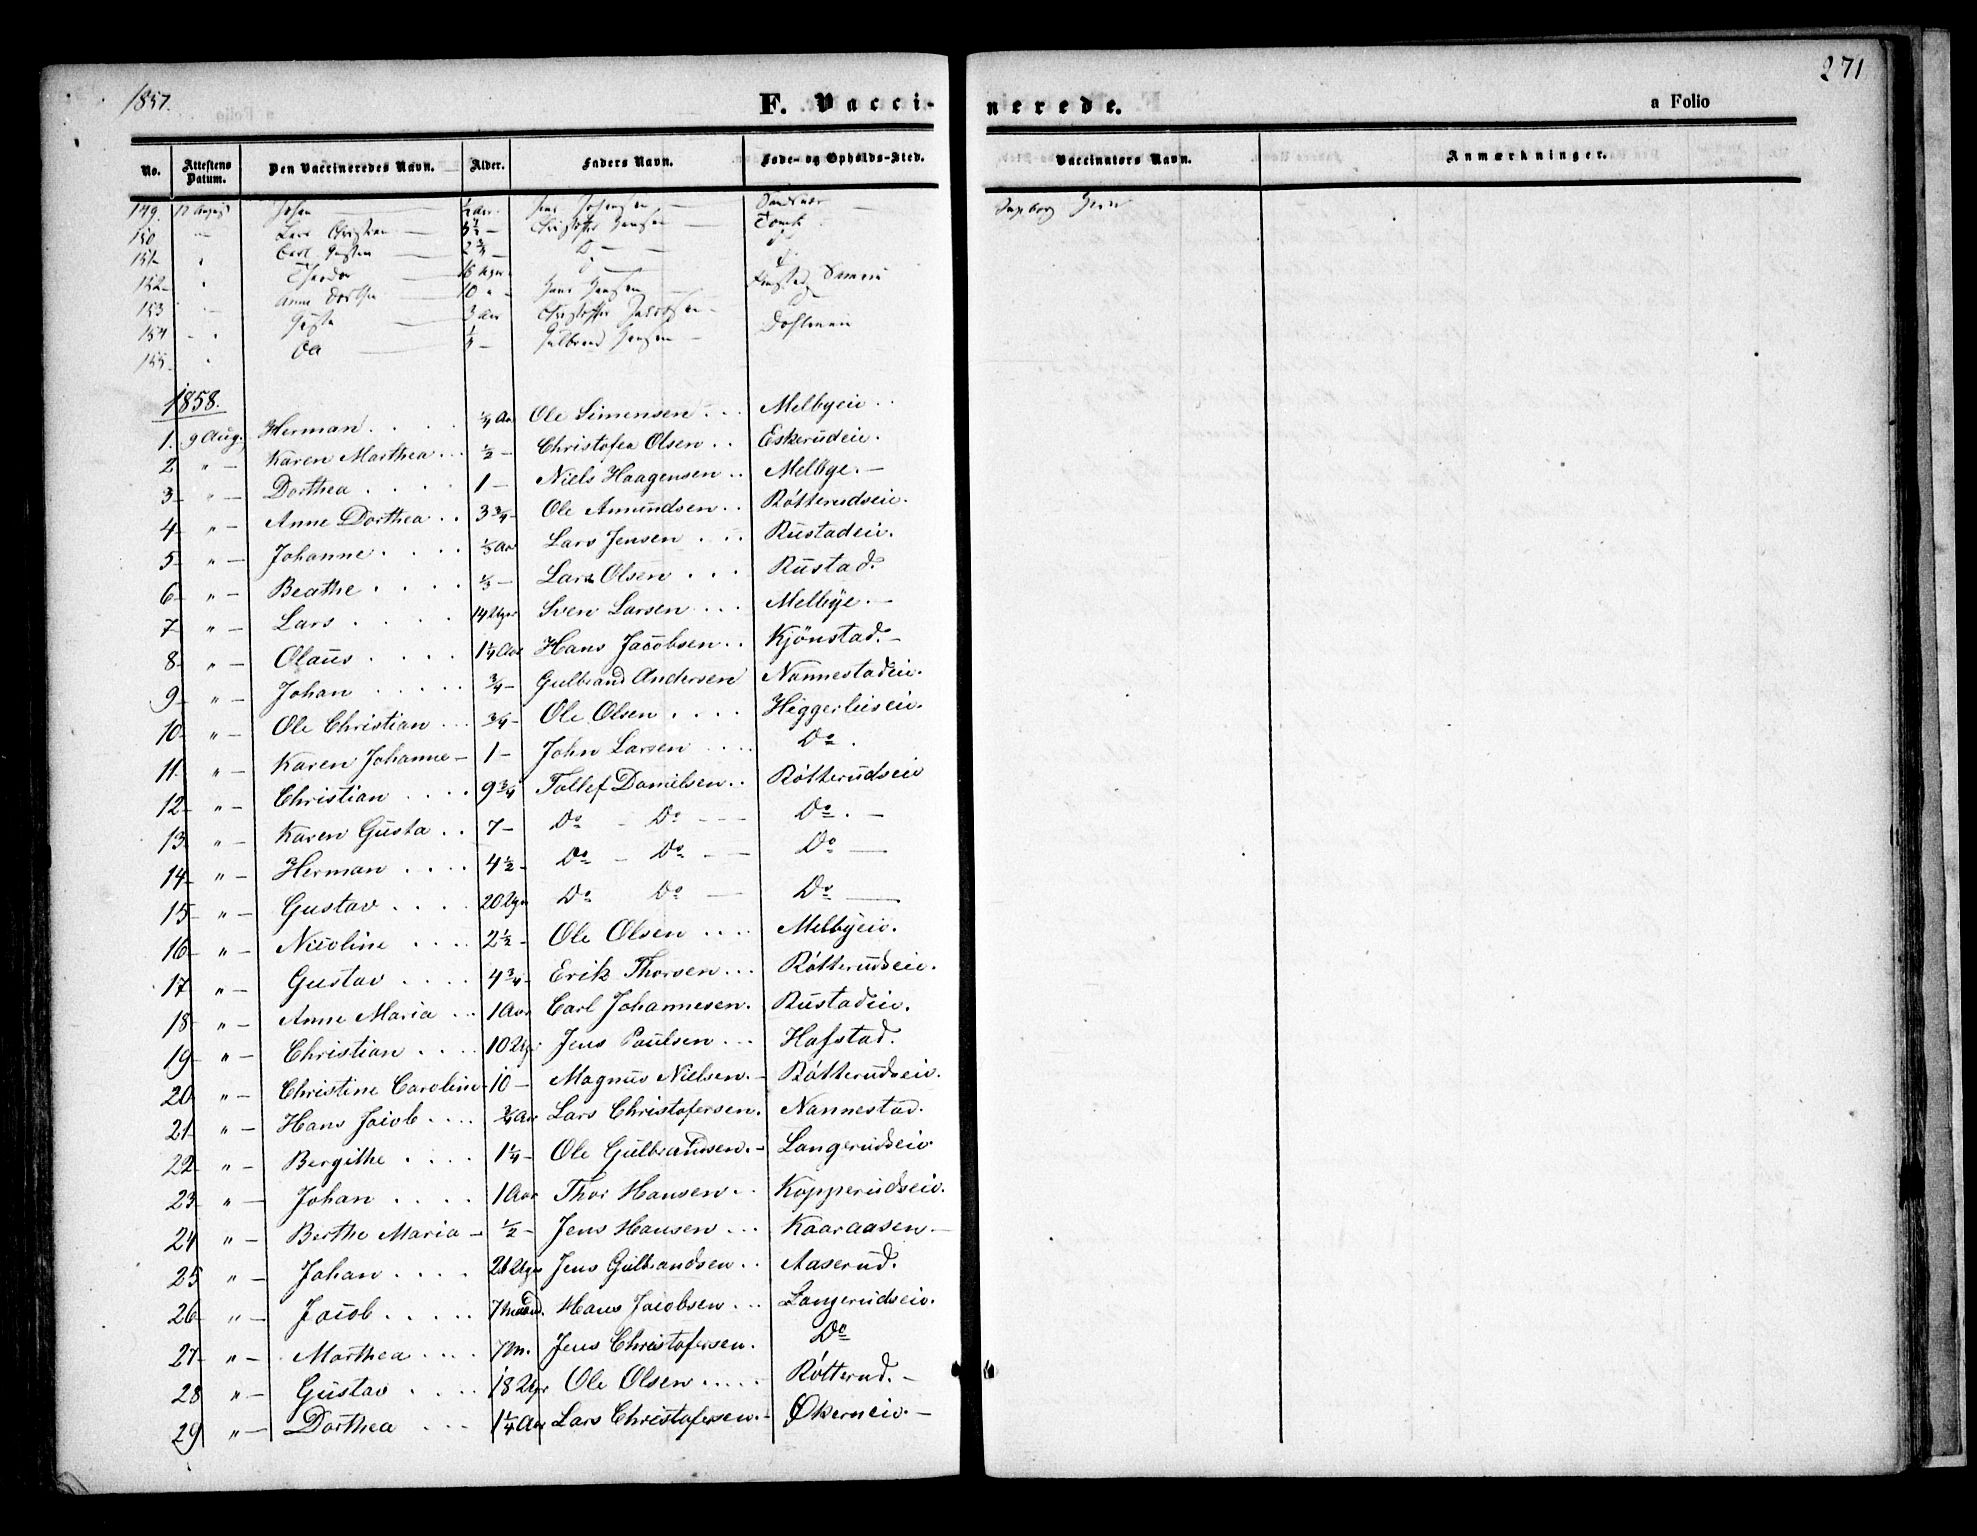 1857.
F. Vacci-
nerede.
a Folio
271
No. Attestens Datum. Den Vaccineredes Navn. Alder. Faders Navn. Føde- og Opholds-Sted. Vaccinators Navn. Anmærkninger.
149. 17 August Johan
150 Lars Christian Christoffer Hansen
151 Carl Gusten 2 3/4 Do
152 Theodor 16 Uger
153 Anne Dorthea 10 Hans Hansen
154 3 Aar Christoffer Jacobsen
155 Gulbrand Hansen
1858.
1. 9 Aug. Herman 1/4 Aar Ole Simensen Melbyeie
2 " Karen Marthea 1/2 Christofer Olsen Eskerudeie.
3 " Dorthea 1 Niels Haagensen Melbye.
4 " Anne Dorthea 3 3/4 Ole Amundsen Rótterudseie.
5 " Johanne Lars Jensen Rustadeie.
6 " Beathe 1/3 Lars Olsen Rustad.
7 " Lars 14 Uger Sven Larsen Melbye.
8 " Olaus 1 1/4 Aar Hans Jacobsen Kjönstad.
9 " Johan 3/4 Gulbrand Andersen Nannestadeie.
10 " Ole Christian 3/4 Ole Olsen Higgerluseie.
11 " Karen Johanne 1 John Larsen Do.
12 " Christian 9 3/4 Tollef Danielsen Rótterudseie
13 " Karen Gusta 7 Do Do Do.
14 " Herman 4 1/2 Do Do Do
15 " Gustav 20 Uger Do Do Do
16 " Nicoline 2 1/2 Ole Olsen Melbyeie.
17 " Gustav 4 3/4 Erik Thorsen Rótterudseie.
18 " Anne Maria 1 Aar Carl Johannesen. Rustadeie.
19 " Christian 10 Uger Jens Paulsen Hafstad.
20 " Christine Caroline 10 Magnus Nielsen. Rótterudseie.
21 " Hans Jacob 3/4 Aar Lars Christofersen. Nannestad.
22 " Bergithe 1 1/4 Ole Gulbrandsen. Langerudseie
23 " Johan 1 Aar Thor Hansen Kopperudseie.
24 " Berthe Maria 1/2 Jens Hansen Kaaraasen
25 " Johan 26 Uger Jens Gulbrandsen Aaserud.
26 " Jacob 7 Maad. Hans Jacobsen Langerudseie.
27 " Marthea 7 M. Jens Christofersen. Do
28 " Gustav 18 Uger Ole Olsen Rótterud.
29 " Dorthea 1 1/4 Aar Lars Christofersen. Økerneie.